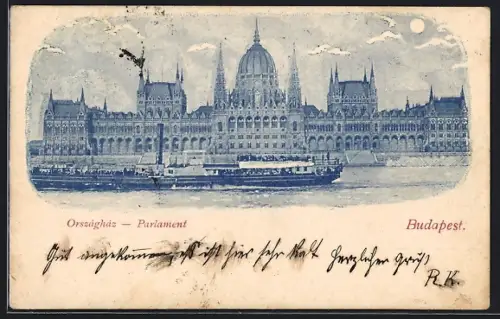 Országház — Parlament
Budapest.
Gut angekommen, es ist hier sehr kalt Herzlichen Gruß
R. K.